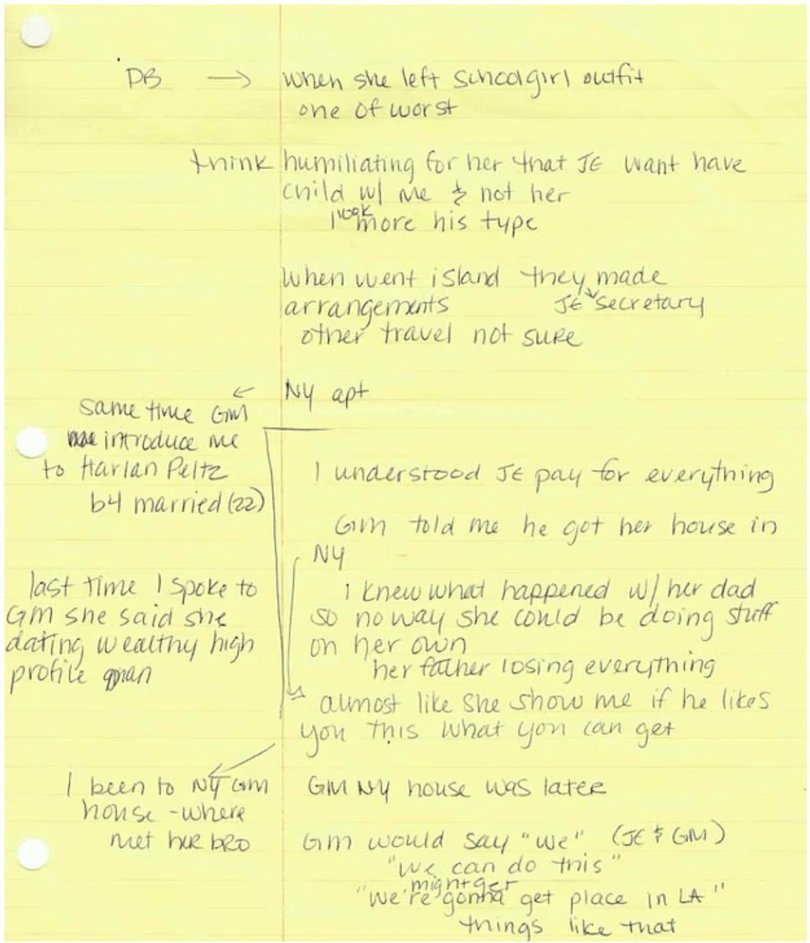 DB → when she left schoolgirl outfit
one of worst
think humiliating for her that JE want have
child w/ me & not her
I look more his type
When went island they made
arrangements JE secretary
other travel not sure
NY apt
same time GM
introduce me
to Harlan Peltz
b4 married (22)
I understood JE pay for everything
GM told me he got her house in
NY
last time I spoke to
GM she said she
dating wealthy high
profile man
I knew what happened w/ her dad
so no way she could be doing stuff
on her own
her father losing everything
almost like she show me if he likes
you this what you can get
I been to NY GM
house - where
met her bro
GM NY house was later
GM would say "we" (JE & GM)
"we can do this"
might get
"we're gonna get place in LA"
things like that